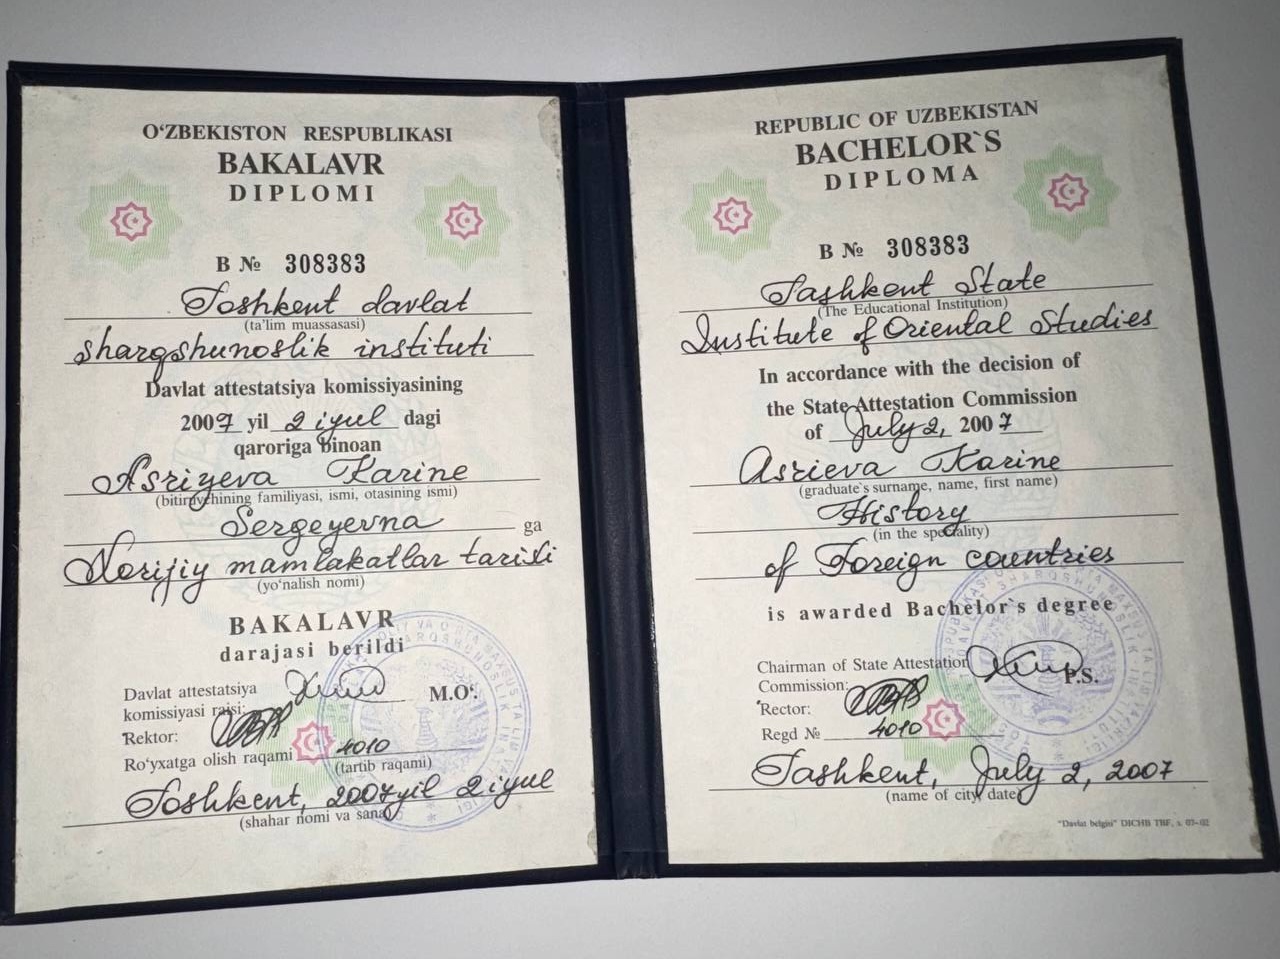 O‘ZBEKISTON RESPUBLIKASI
BAKALAVR
DIPLOMI
B № 308383
Toshkent davlat
(ta’lim muassasasi)
sharqshunoslik instituti
Davlat attestatsiya komissiyasining
2007 yil 2 iyul dagi
qaroriga binoan
Asriyeva Karine
(bitiruvchining familiyasi, ismi, otasining ismi)
Sergeyevna ga
Xorijiy mamlakatlar tarixi
(yo‘nalish nomi)
BAKALAVR
darajasi berildi
Davlat attestatsiya
komissiyasi raisi:
M.O‘.
Rektor:
Ro‘yxatga olish raqami 4010
(tartib raqami)
Toshkent, 2007 yil 2 iyul
(shahar nomi va sana)
REPUBLIC OF UZBEKISTAN
BACHELOR`S
DIPLOMA
B № 308383
Tashkent State
(The Educational Institution)
Institute of Oriental Studies
In accordance with the decision of
the State Attestation Commission
of July 2, 2007
Asrieva Karine
(graduate`s surname, name, first name)
History
(in the speciality)
of Foreign countries
is awarded Bachelor`s degree
Chairman of State Attestation
Commission:
P.S.
Rector:
Regd № 4010
Tashkent, July 2, 2007
(name of city, date)
"Davlat belgisi" DICHB TBF, z. 07–02